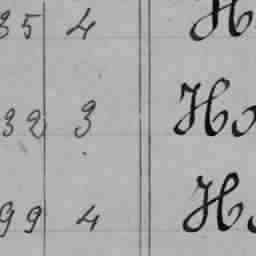 35 4 H
32 3 Ho
99 4 Ho